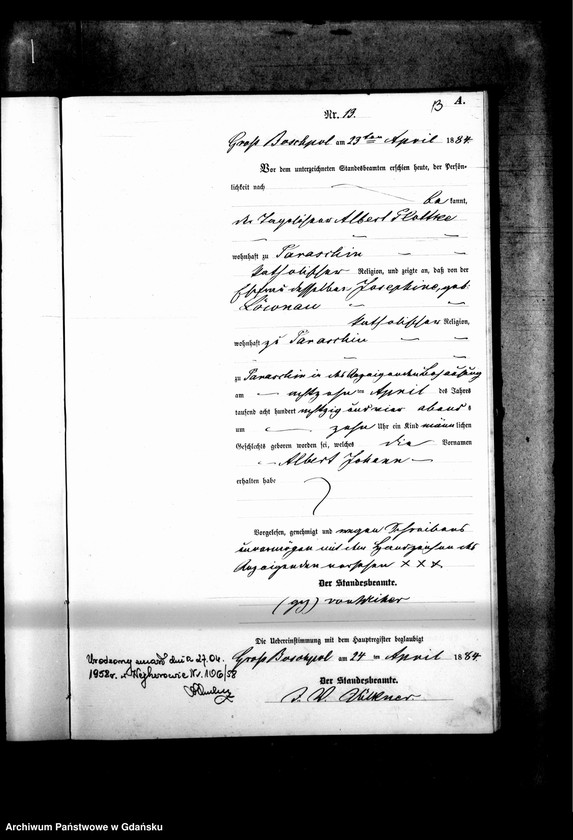 13 A.
Nr. 13.
Groß Boschpol am 23ten April 1884.
Vor dem unterzeichneten Standesbeamten erschien heute, der Persön-
lichkeit nach
be kannt,
der Tagelöhner Albert Plottke
wohnhaft zu Paraschin
katholischer Religion, und zeigte an, daß von der
Ehefrau desselben Josephine, geb.
Löwnau
katholischer Religion,
wohnhaft zu Paraschin
zu Paraschin in des Anzeigenden Behausung
am achtzehn ten April des Jahres
tausend acht hundert achtzig und vier abends
um zehn Uhr ein Kind männlichen
Geschlechts geboren worden sei, welches die Vornamen
Albert Johann
erhalten habe
Vorgelesen, genehmigt und wegen Schreibens
unvermögen mit den Handzeichen des
Anzeigenden versehen X X X
Der Standesbeamte.
(gez)
Die Uebereinstimmung mit dem Hauptregister beglaubigt
Groß Boschpol am 24 ten April 1884.
Der Standesbeamte.
J. V. Völkner
Urodzony zmarł dnia 27.04.
1958r. w Wejherowie Nr. 106/58
Archiwum Państwowe w Gdańsku